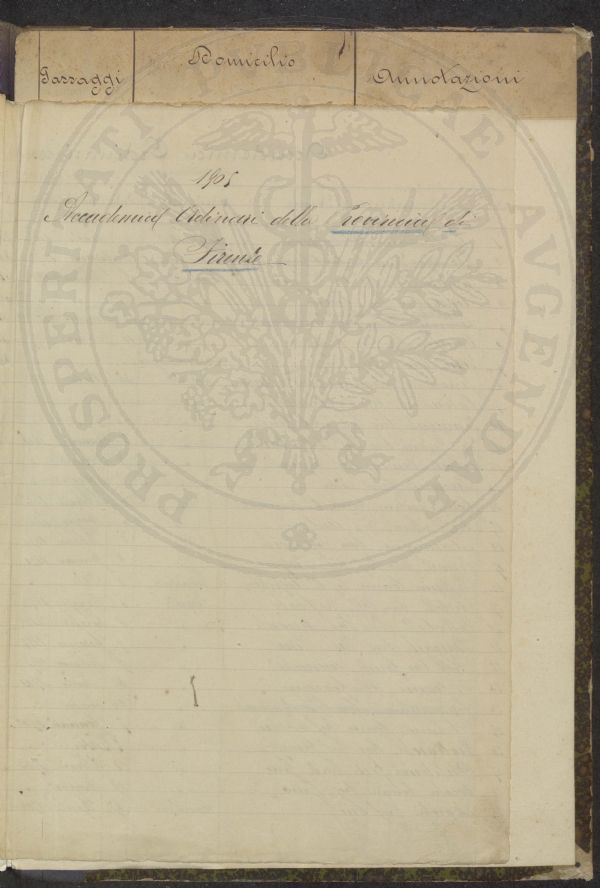 Passaggi
Domicilio
Annotazioni
1905
Accademici Ordinari della Provincia di
Firenze
PROSPERITATI PUBLICAE AUGENDAE